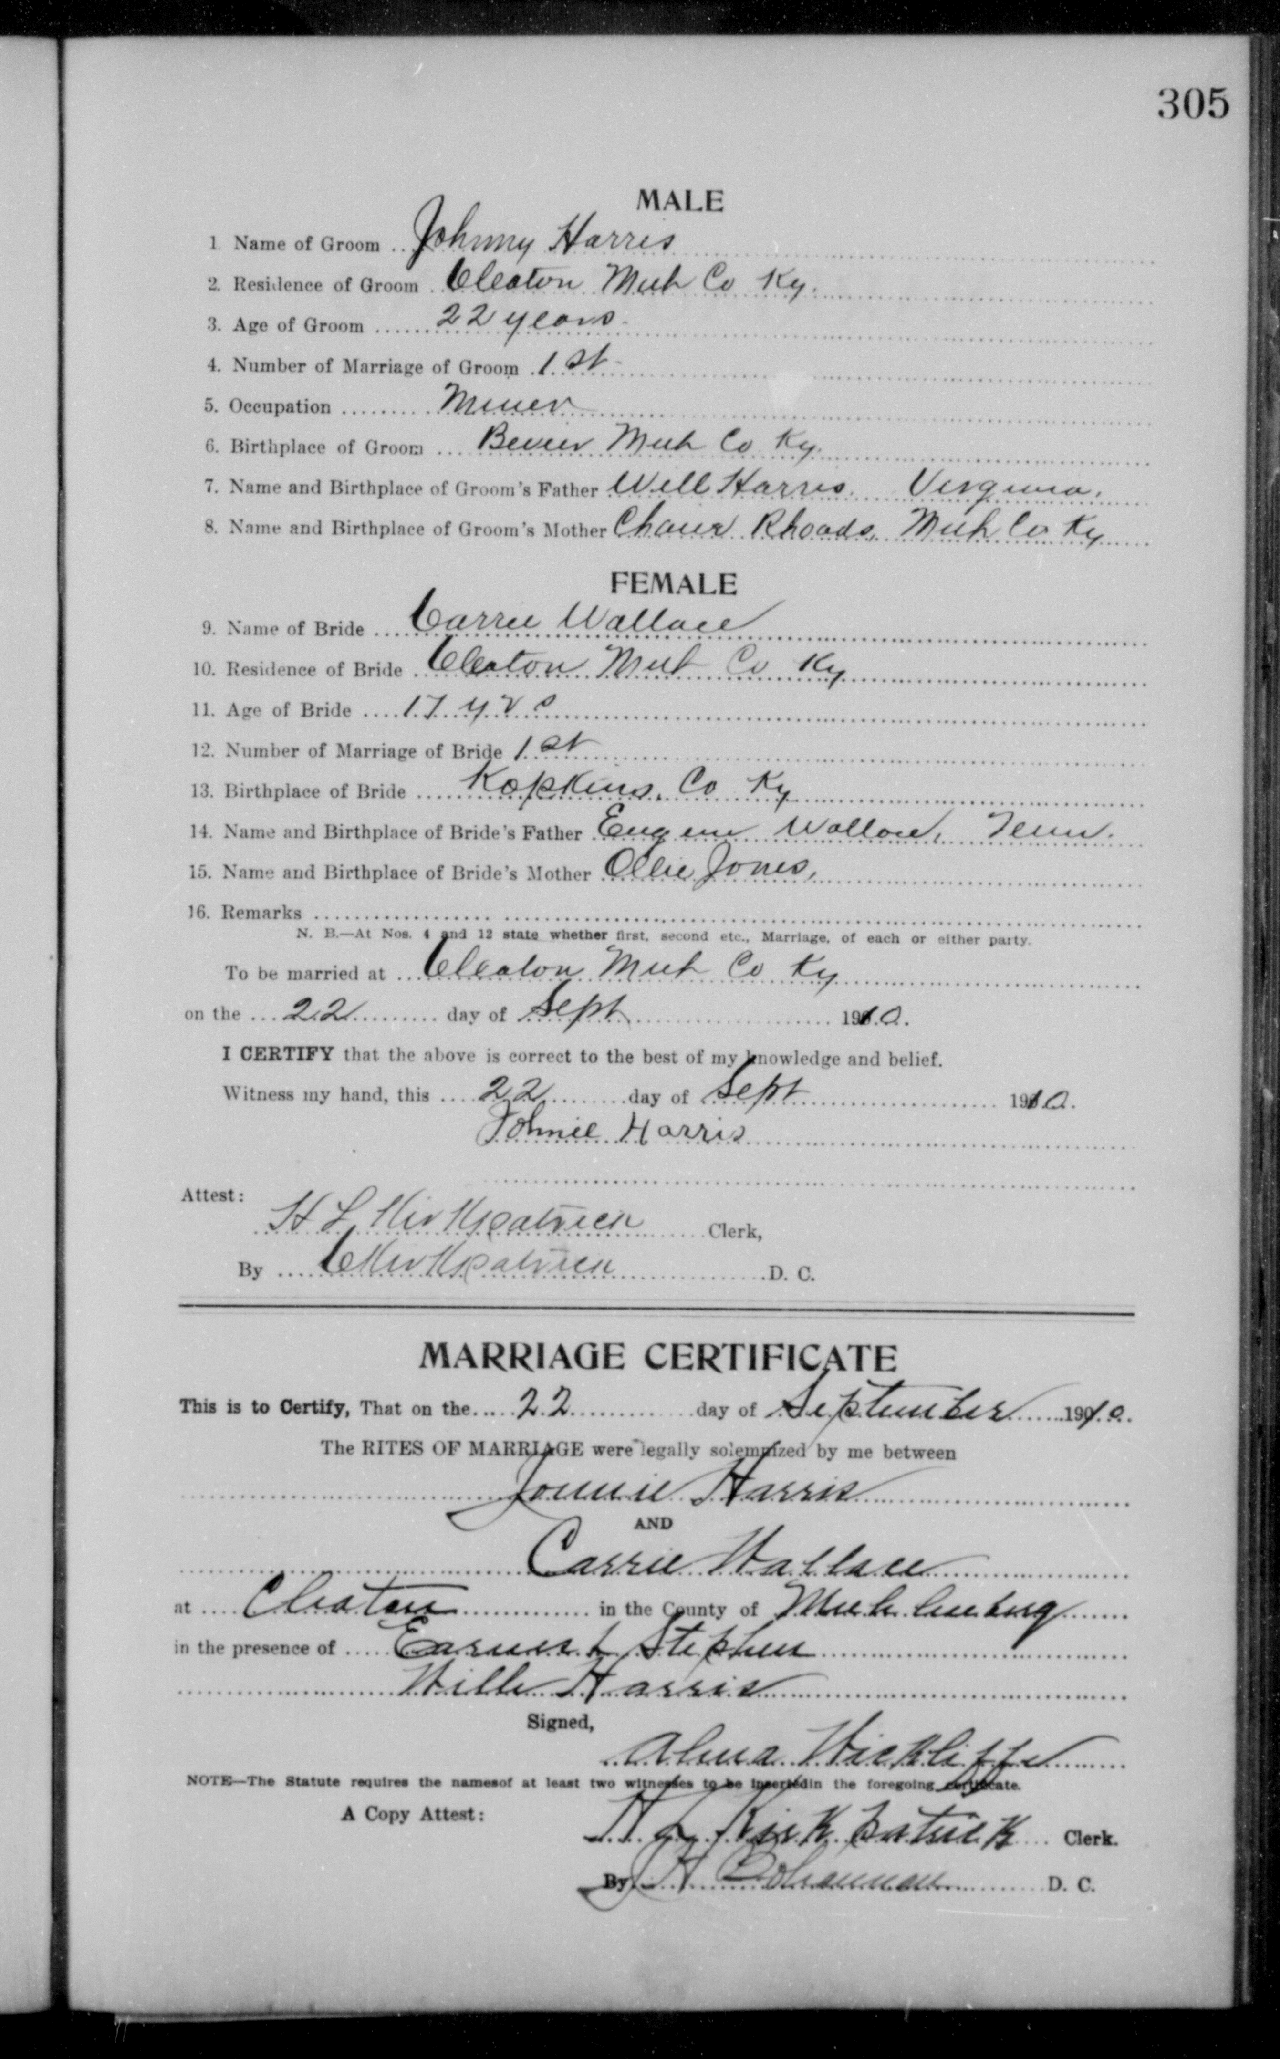 305
MALE
1 Name of Groom Johnny Harris
2. Residence of Groom Cleaton Muh Co Ky.
3. Age of Groom 22 years
4. Number of Marriage of Groom 1st
5. Occupation Miner
6. Birthplace of Groom Bevier Muh Co Ky.
7. Name and Birthplace of Groom's Father Will Harris. Virginia.
8. Name and Birthplace of Groom's Mother Rhoads, Muh Co Ky
FEMALE
9. Name of Bride Carrie Wallace
10. Residence of Bride Cleaton Muh Co Ky
11. Age of Bride 17 yrs
12. Number of Marriage of Bride 1st
13. Birthplace of Bride Hopkins. Co Ky
14. Name and Birthplace of Bride's Father Eugene Wallace, Tenn.
15. Name and Birthplace of Bride's Mother Ollie Jones,
16. Remarks
N. B.—At Nos. 4 and 12 state whether first, second etc., Marriage, of each or either party.
To be married at Cleaton Muh Co Ky
on the 22 day of Sept 1910.
I CERTIFY that the above is correct to the best of my knowledge and belief.
Witness my hand, this 22 day of Sept 1910.
Johnie Harris
Attest:
H L Kirkpatrick Clerk,
By C Kirkpatrick D. C.
MARRIAGE CERTIFICATE
This is to Certify, That on the 22 day of September 1910.
The RITES OF MARRIAGE were legally solemnized by me between
Jonnie Harris
AND
Carrie Wallace
at Cleaton in the County of Muhlenburg
in the presence of Earnest Stephen
Wille Harris
Signed,
Alma Wickliffe
NOTE—The Statute requires the namesof at least two witnesses to be insertedin the foregoing certificate.
A Copy Attest:
H L Kirkpatrick Clerk.
By H Bohannan D. C.